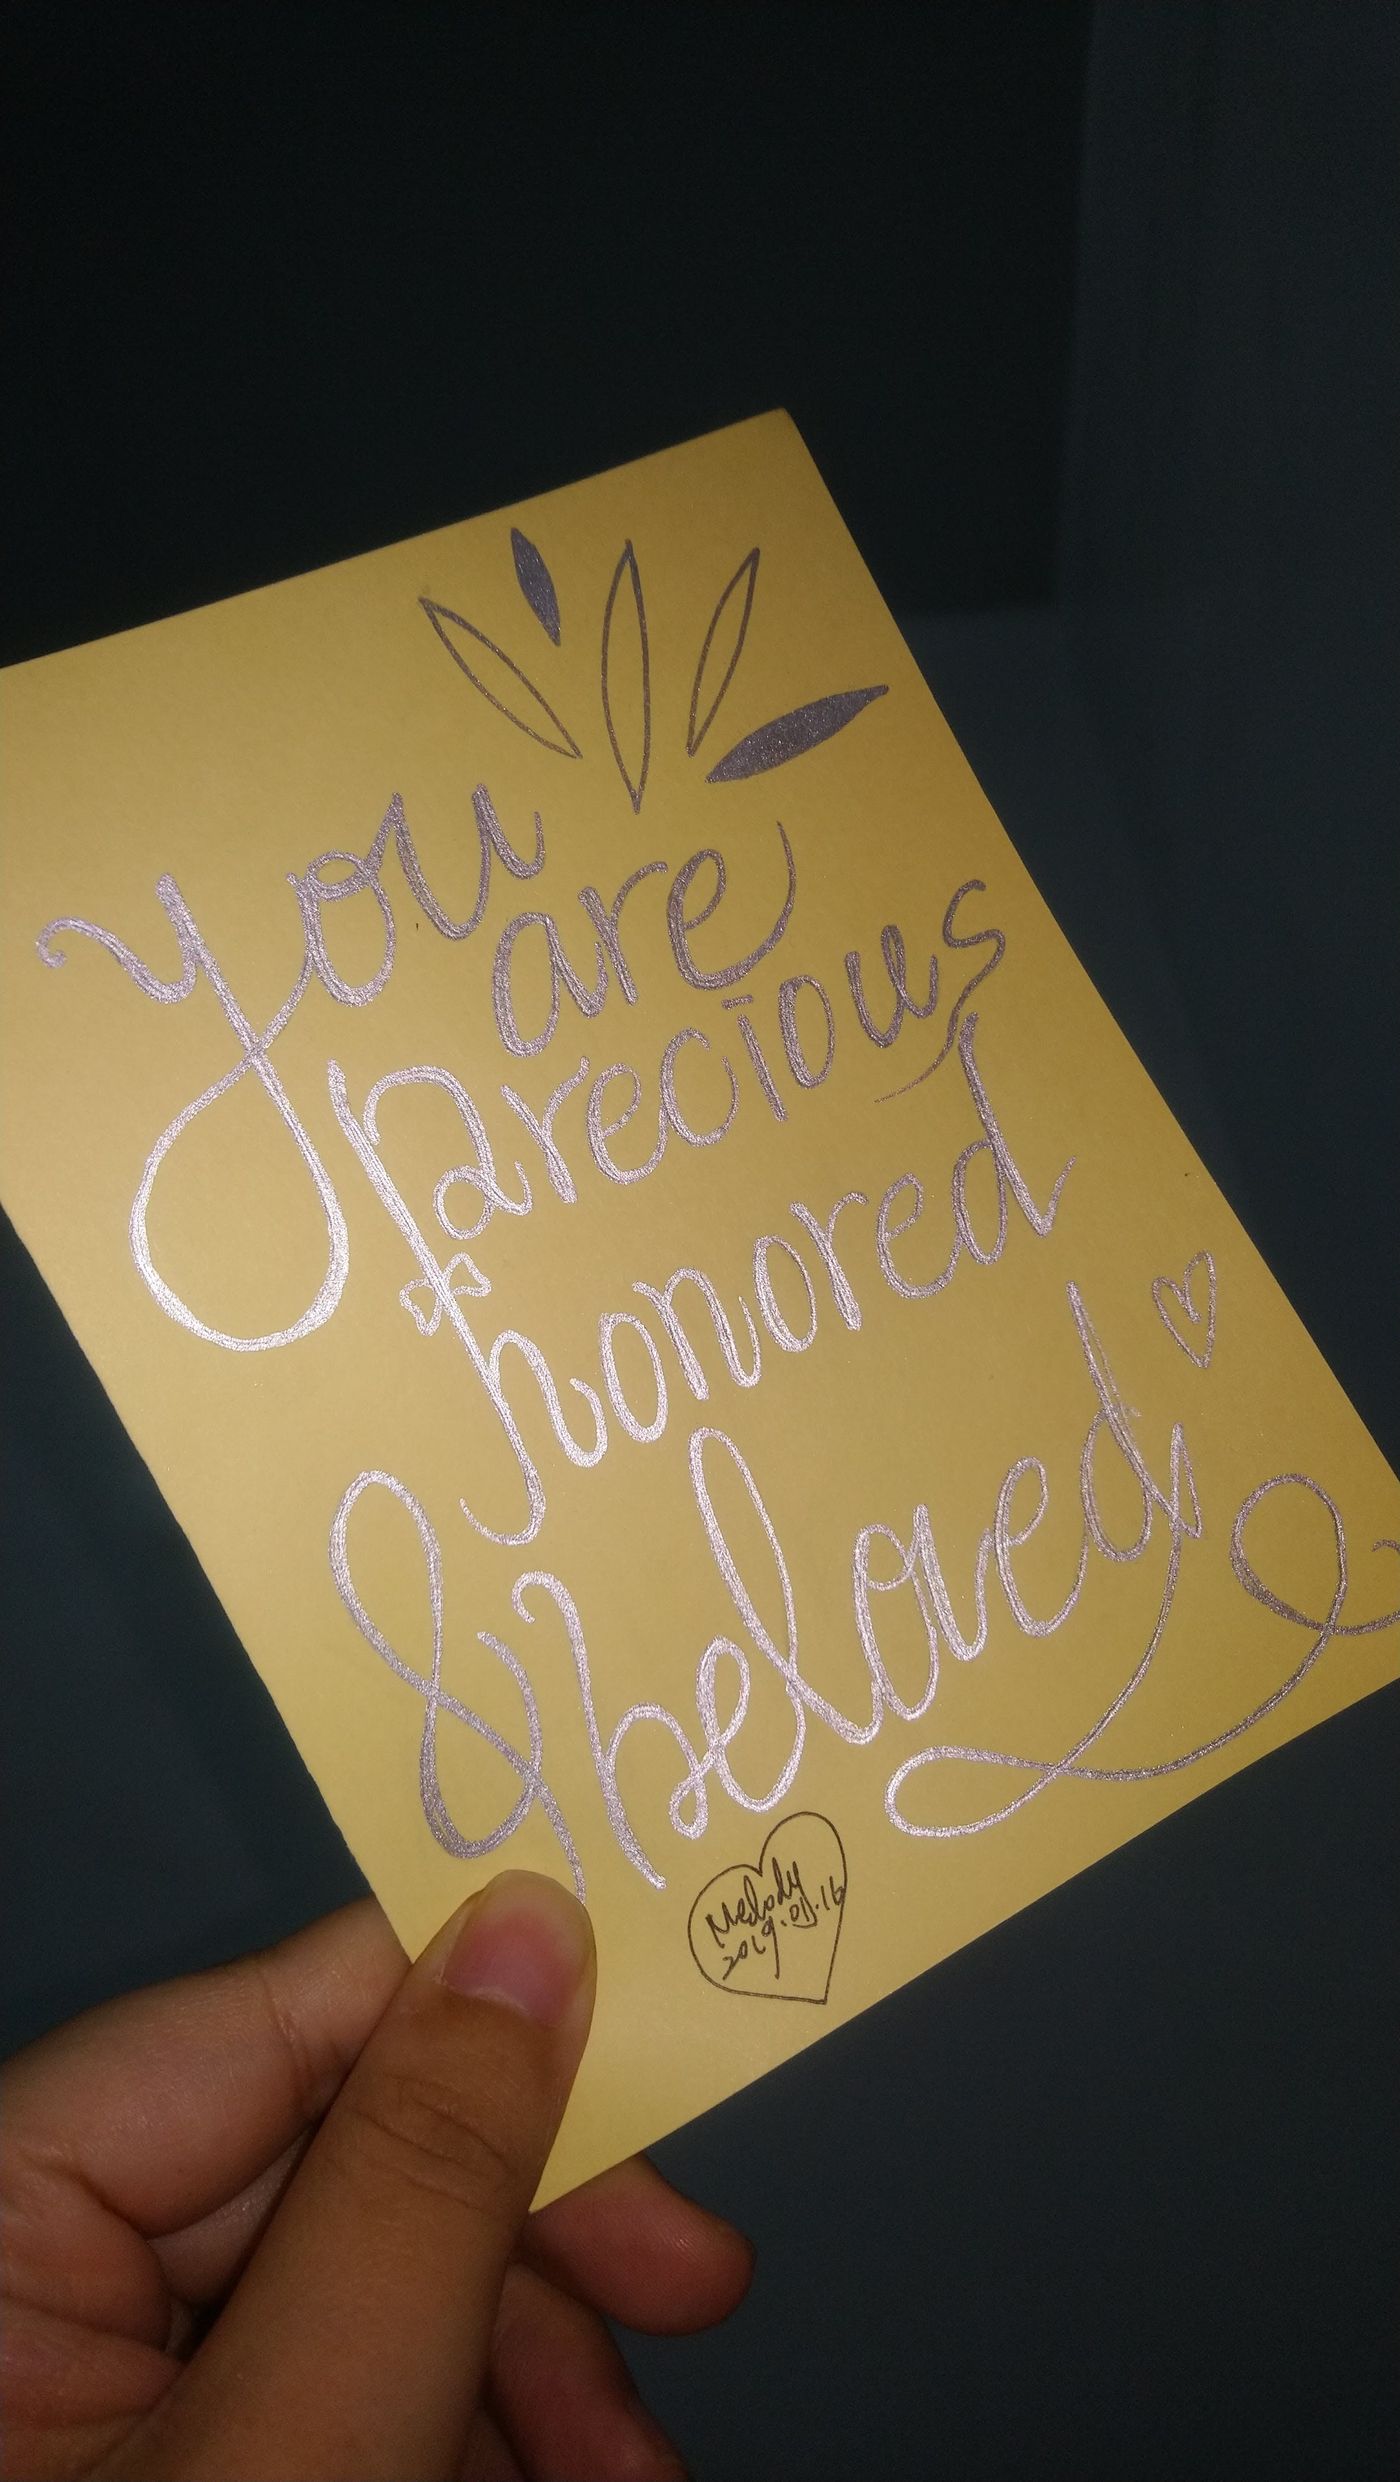 You
are
precious
honored
& beloved
Melody
2019.01.16